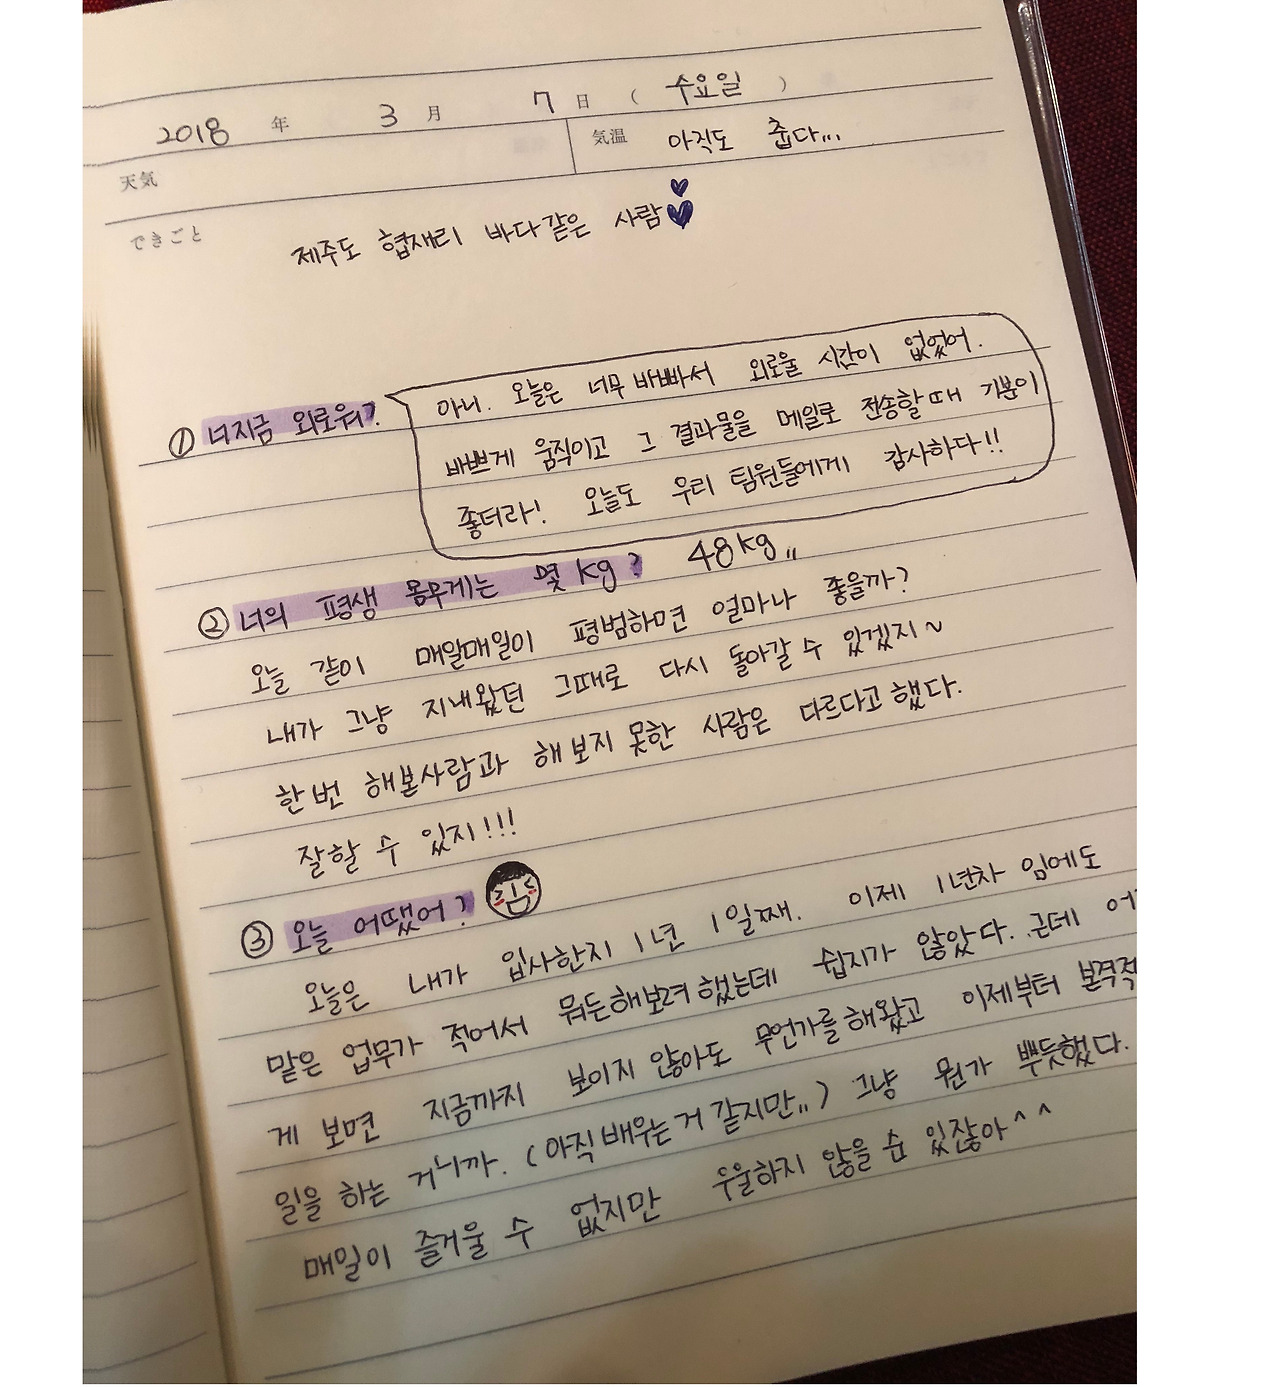 2018 年 3 月 7 日 ( 수요일 )
天気 気温 아직도 춥다...
できごと
제주도 협재리 바다같은 사람
① 너지금 외로워?
아니. 오늘은 너무 바빠서 외로울 시간이 없었어.
바쁘게 움직이고 그 결과물을 메일로 전송할때 기분이
좋더라! 오늘도 우리 팀원들에게 감사하다!!
② 너의 평생 몸무게는 몇 kg? 48kg,,
오늘 같이 매일매일이 평범하면 얼마나 좋을까?
내가 그냥 지내왔던 그때로 다시 돌아갈 수 있겠지~
한번 해본사람과 해보지 못한 사람은 다르다고 했다.
잘할 수 있지!!!
③ 오늘 어땠어?
오늘은 내가 입사한지 1년 1일째. 이제 1년차 임에도
맡은 업무가 적어서 뭐든해보려 했는데 쉽지가 않았다. 근데 어
게 보면 지금까지 보이지 않아도 무언가를 해왔고 이제부터 본격적
일을 하는 거니까. (아직 배우는거 같지만,,) 그냥 뭔가 뿌듯했다.
매일이 즐거울 수 없지만 우울하지 않을 순 있잖아^^